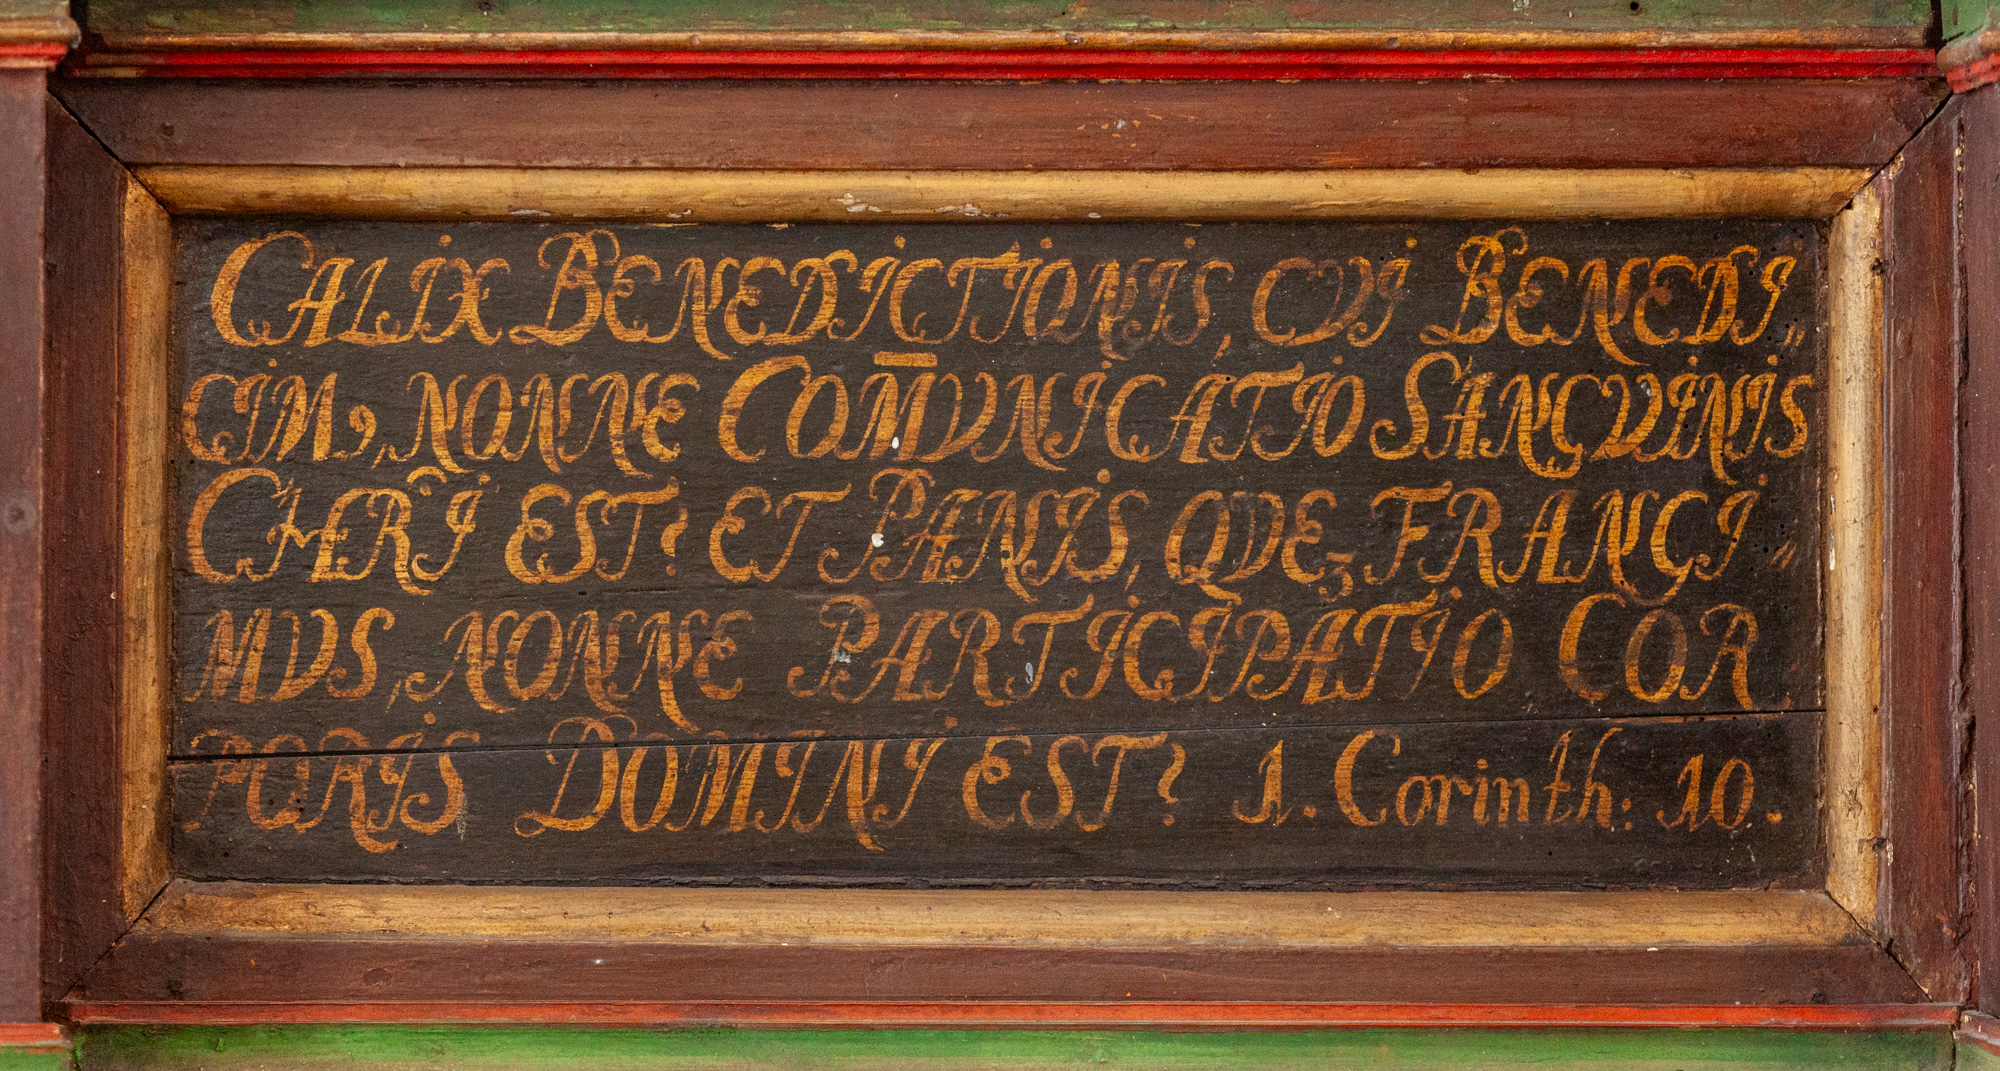 CALIX BENEDICTIONIS, CVI BENEDI„
CIMꝰ, NONNE COM̅VNICATIO SANGVINIS
CHȒI EST? ET PANIS, QVĘ FRANGI„
MVS, NONNE PARTICIPATIO COR
PORIS DOMINI EST? 1. Corinth: 10.